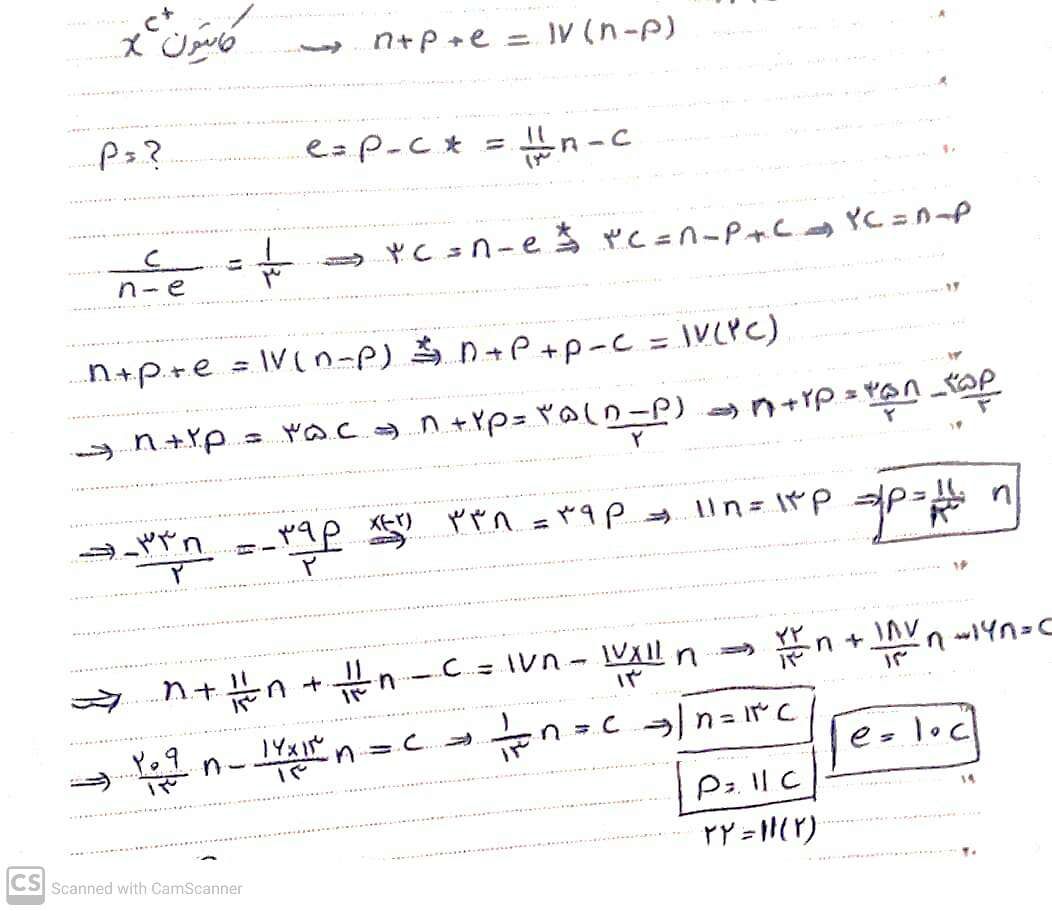 کاتیون x^c+ → n+p+e = ۱۷(n-p)
p=? e=p-c * = ۱۱/۱۳ n-c
c/n-e = ۱/۳ ⇒ ۳c=n-e *⇒ ۳c=n-p+c ⇒ ۲c=n-p
n+p+e = ۱۷(n-p) *⇒ n+p+p-c = ۱۷(۲c)
→ n+۲p = ۳۵c ⇒ n+۲p=۳۵(n-p/۲) ⇒ n+۲p = ۳۵n/۲ - ۳۵p/۲
⇒ -۳۳n/۲ = -۳۹p/۲ ×(-۲)⇒ ۳۳n = ۳۹p ⇒ ۱۱n = ۱۳p ⇒ p=۱۱/۱۳ n
⇒ n+۱۱/۱۳ n+۱۱/۱۳ n-c = ۱۷n-۱۷×۱۱/۱۳ n ⇒ ۲۲/۱۳ n+۱۸۷/۱۳ n-۱۶n=c
⇒ ۲۰۹/۱۳ n-۱۶×۱۳/۱۳ n=c ⇒ ۱/۱۳ n=c ⇒ n=۱۳c e=۱۰c
p=۱۱c
۲۲=۱۱(۲)
CS Scanned with CamScanner